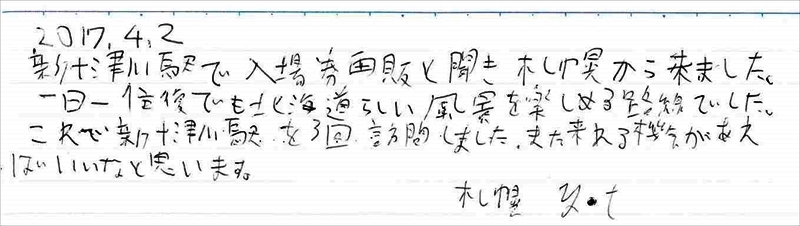 2017.4.2
新十津川駅で入場券再販と聞き札幌から来ました。
一日一往復でも北海道らしい風景を楽しめる路線でした。
これで新十津川駅を3回訪問しました。また来れる機会があえ
ばいいなと思います。
札幌 Y.t